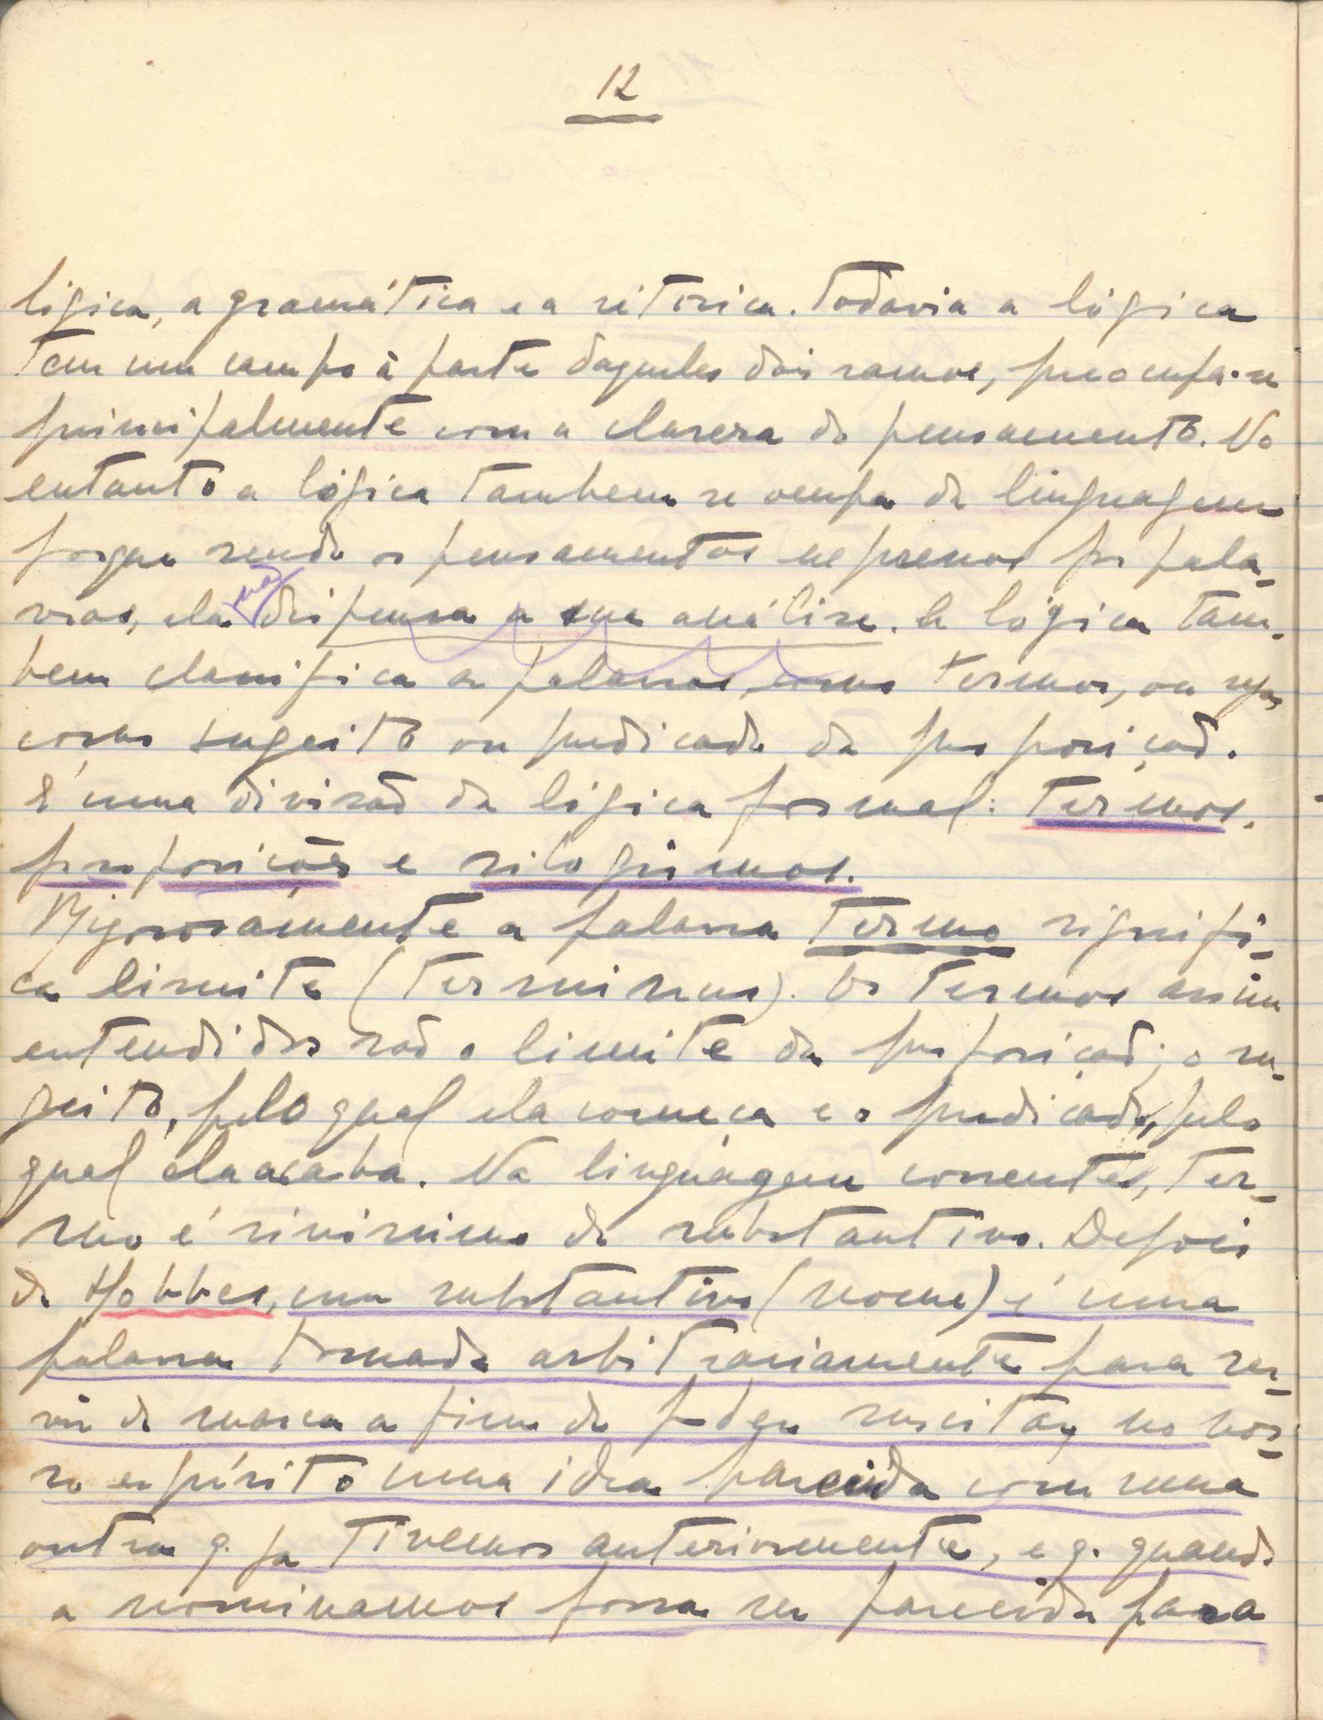 12
lógica, a gramática e a retórica. Todavia a lógica
tem um campo à parte daqueles dois ramos, preocupa-se
principalmente com a clareza do pensamento. No
entanto a lógica tambem se ocupa da linguagem
porque sendo os pensamentos expressos por pala-
vras, ela não dispensa a sua análise. A lógica tam-
bem classifica as palavras como termos, ou seja
como sugeito ou predicado da proposição.
É uma divisão da lógica formal: termos,
proposições e silogismos.
Rigorosamente a palavra termo signifi-
ca limite (terminus). Os termos assim
entendidos são o limite da proposição; o su-
geito, pelo qual ela começa e o predicado, pelo
qual ela acaba. Na linguagem corrente, ter-
mo é sinónimo de substantivo. Depois
de Hobbes, um substantivo (nome) é uma
palavra tomada arbitrariamente para ser-
vir de marca a fim de poder suscitar no nos-
so espírito uma idea parecida com uma
outra q. ja tivemos anteriormente, e q. quando
a nominamos possa ser parecida para